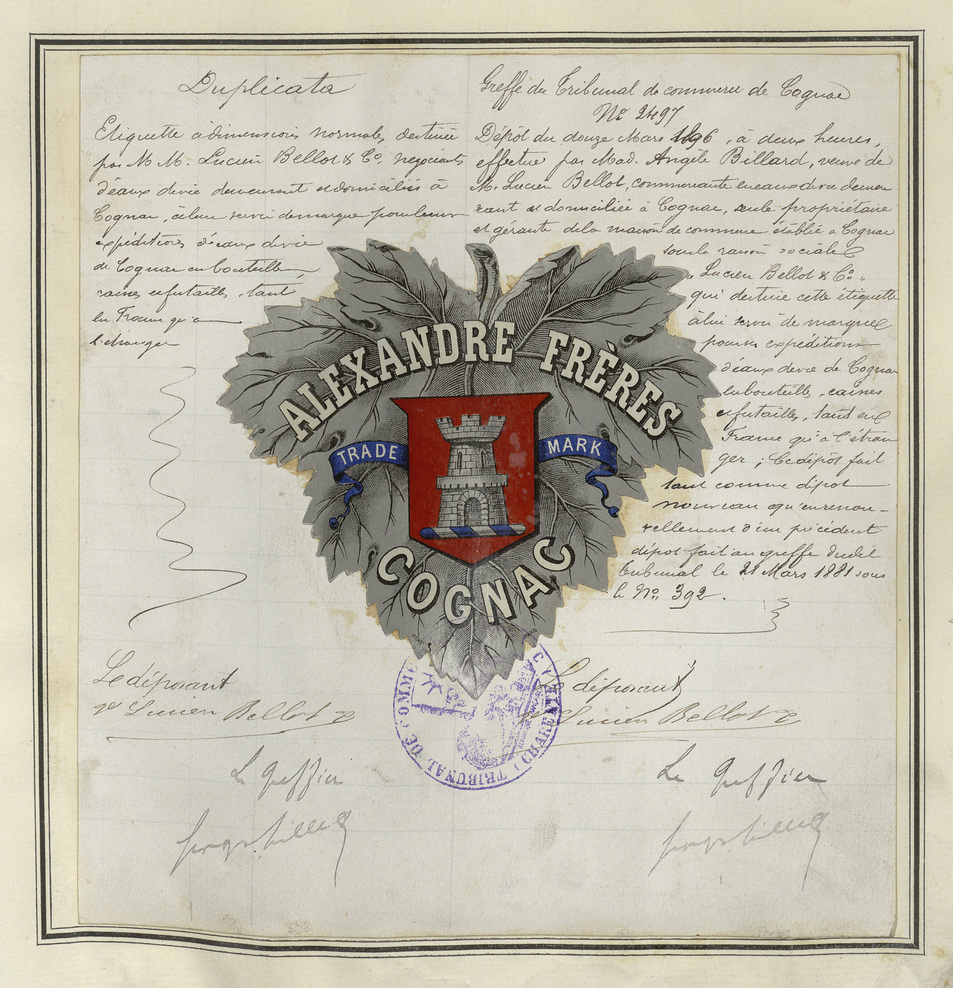 Duplicata
Etiquette à dimensions normales, destinée
par M.M. Lucien Bellot & Co, négociants
d'eaux de vie demeurant et domiciliés à
Cognac, à leur servir de marque pour leurs
expéditions d'eaux de vie
de Cognac en bouteilles,
caisses et futailles, tant
en France qu'à
l'étranger
Greffe du Tribunal de commerce de Cognac
No 2497
Dépôt du douze Mars 1896, à deux heures,
effectué par Mad. Angèle Billard, veuve de
M. Lucien Bellot, commerçante en eaux de vie demeu
rant et domiciliée à Cognac, seule propriétaire
et gérante de la maison de commerce établie à Cognac
sous la raison sociale
Lucien Bellot & Co.
qui destine cette étiquette
à lui servir de marque
pour ses expéditions
d'eaux de vie de Cognac
en bouteilles, caisses
et futailles, tant en
France qu'à l'étran
ger ; Ce dépôt fait
tant comme dépôt
nouveau qu'en renou-
vellement d'un précédent
dépôt fait au greffe dudit
Tribunal le 21 Mars 1881 sous
le No. 392.
ALEXANDRE FRÈRES
TRADE MARK
COGNAC
Le déposant
Ve Lucien Bellot
Le déposant
Lucien Bellot
TRIBUNAL DE COMMERCE
(CHARENTE)
Le Greffier
Le Greffier